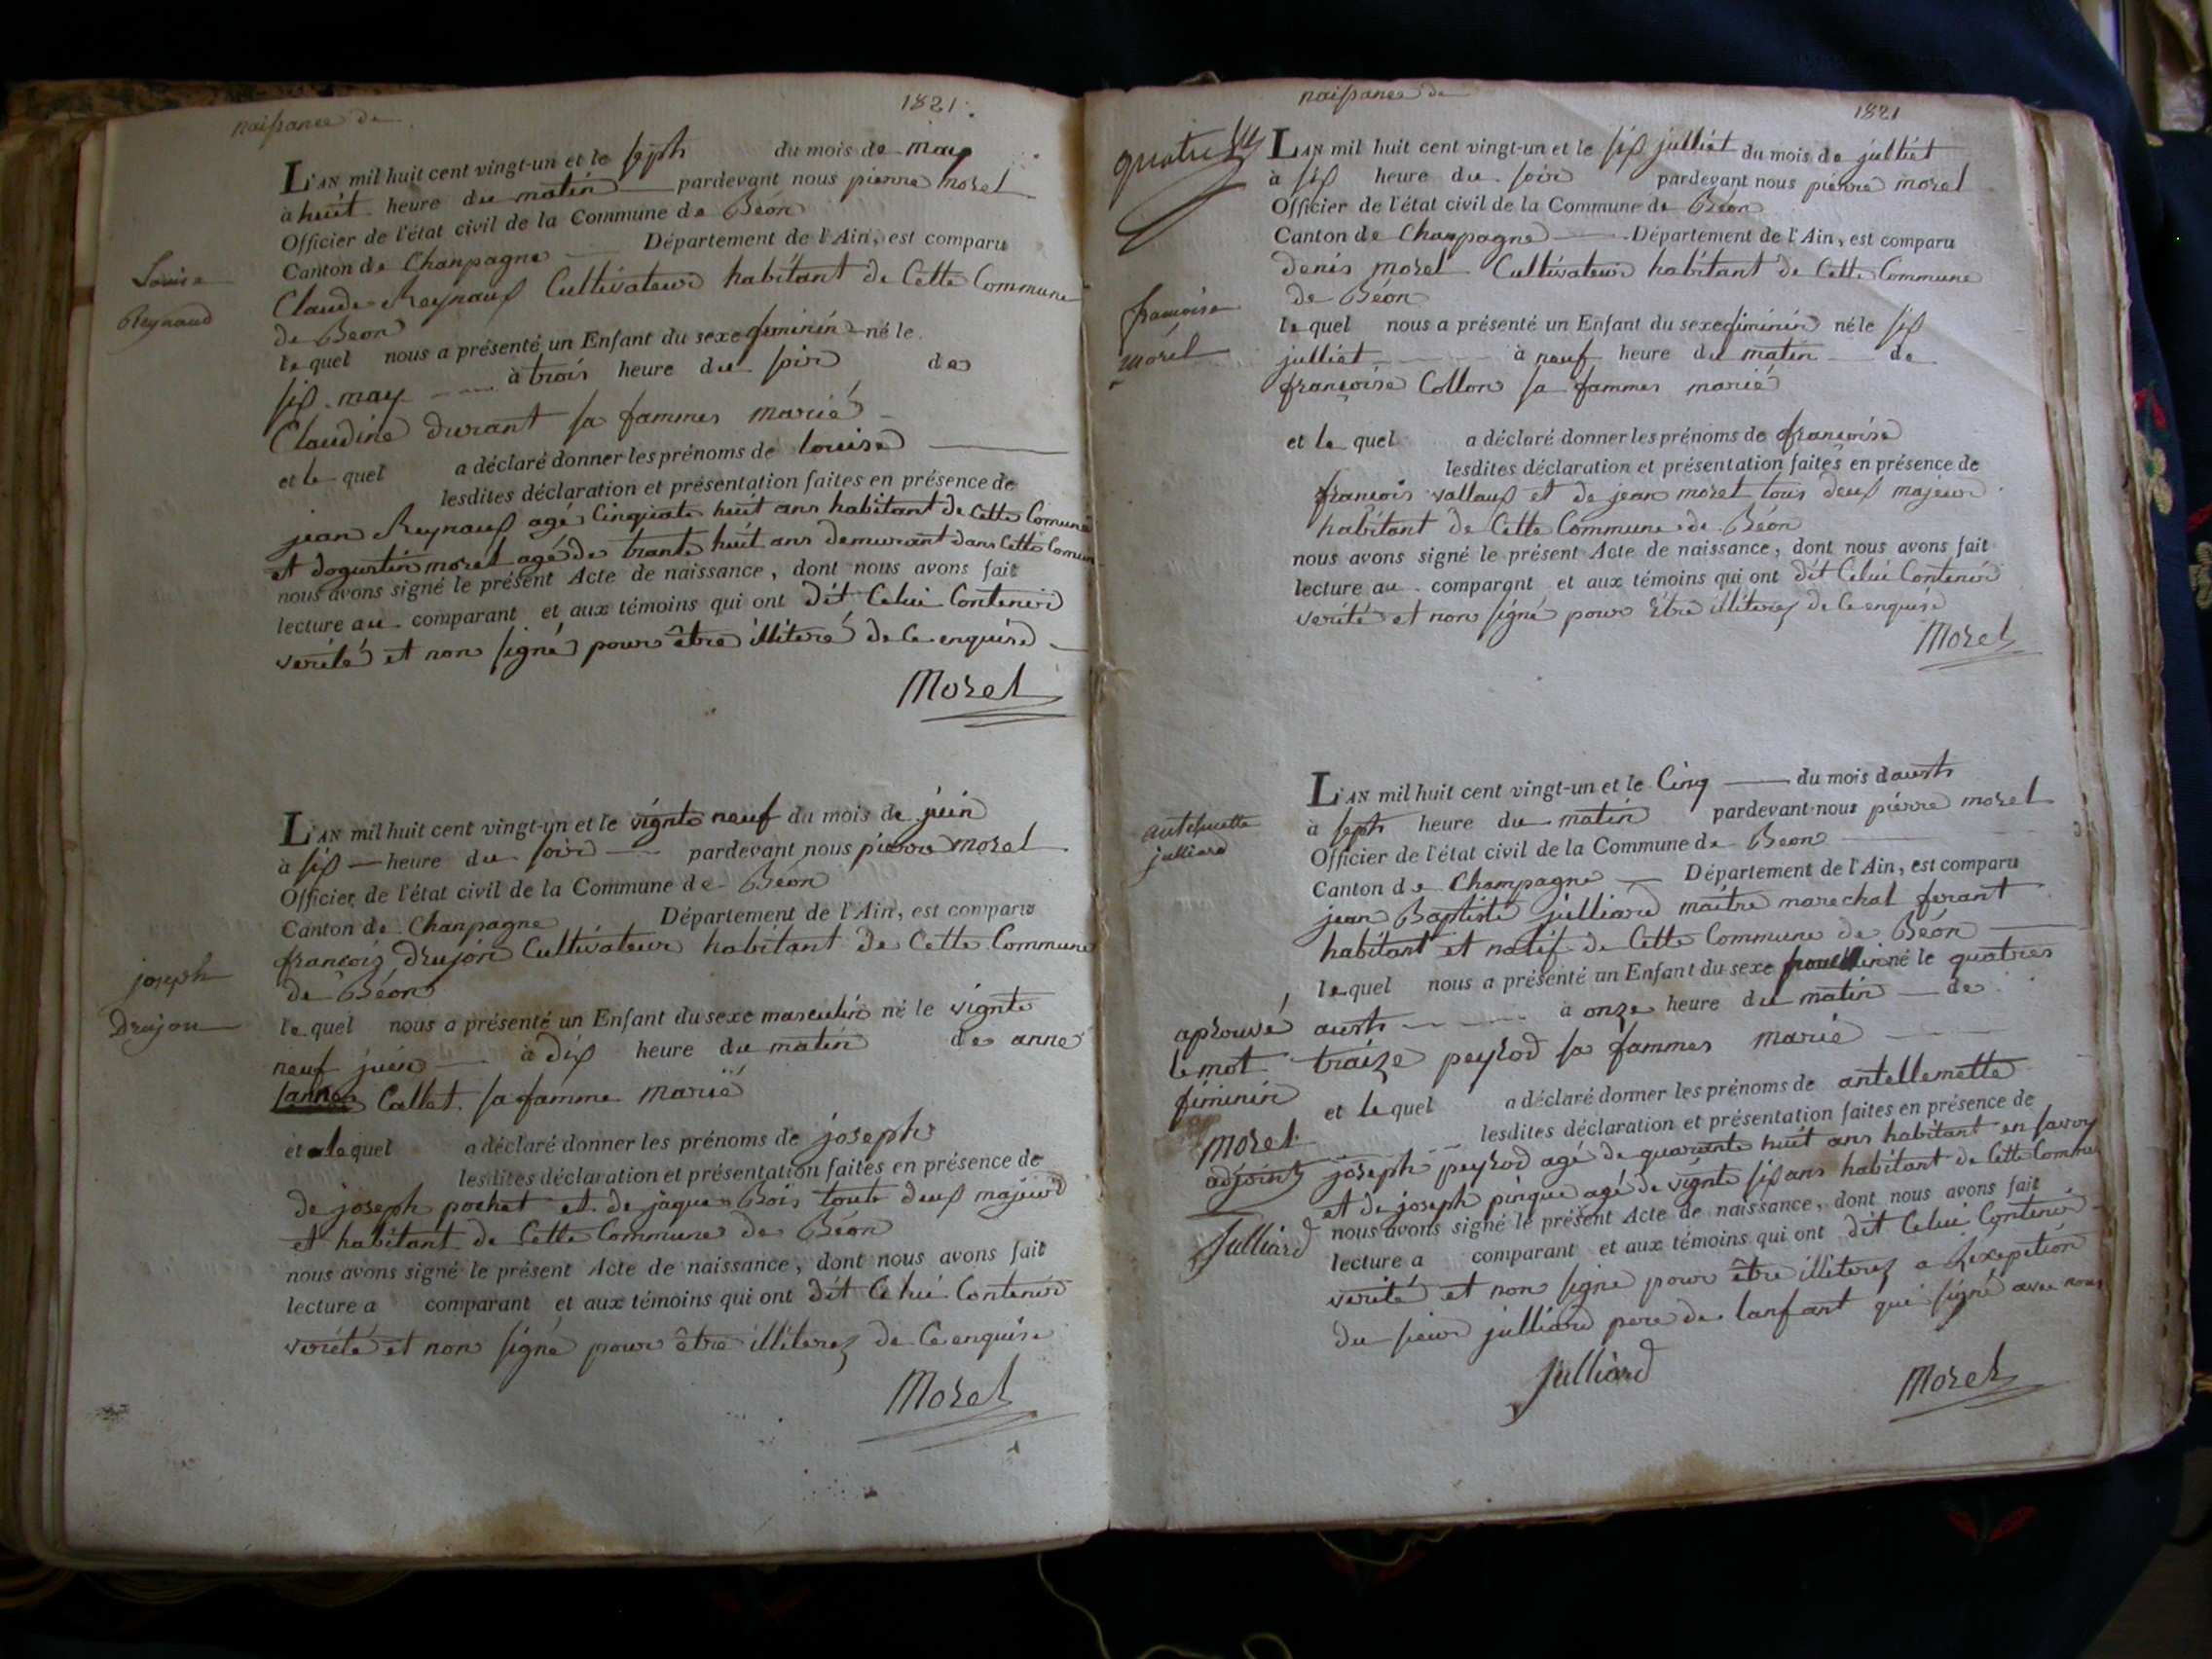 naissance de
1821.
L'AN mil huit cent vingt-un et le septs du mois de may
à huit heure du matin pardevant nous pierre morel
Officier de l'état civil de la Commune de Béon
Canton de Chanpagne Département de l'Ain, est comparu
Claude Reynaux Cultivateur habitant de Cette Commune
de Beon
le quel nous a présenté un Enfant du sexe feminin né le
six may à trois heure du soir de
Claudine durant sa fammes marié
et le quel a déclaré donner les prénoms de louise
lesdites déclaration et présentation faites en présence de
jean Reynaux agé Cinquate huit ans habitant de Cette Comune
et dogustin morel agé de trante huit ans demurant dans Cette Comun
nous avons signé le présent Acte de naissance, dont nous avons fait
lecture au comparant et aux témoins qui ont dit Celui Contenir
verité et non signé pour être illiteré de Ce enquire
Morel
Louise
Reynaud
L'AN mil huit cent vingt-un et le vignte neuf du mois de juin
à six heure du soir pardevant nous pierre morel
Officier de l'état civil de la Commune de Béon
Canton de Chanpagne Département de l'Ain, est comparu
francois Drujon Cultivateur habitant de Cette Commune
de Béon
le quel nous a présenté un Enfant du sexe masculin né le vignte
neuf juin à dix heure du matin de anne
Callet sa famme marié
et le quel a déclaré donner les prénoms de joseph
lesdites déclaration et présentation faites en présence de
de joseph pochet et de jaque Bois tout deux majeur
et habitant de Cette Commune de Béon
nous avons signé le présent Acte de naissance, dont nous avons fait
lecture a comparant et aux témoins qui ont dit Celui Contenir
verité et non signé pour être illiterez de Ce enquire
Morel
joseph
Drujon
naissance de
1821
quatre
L'AN mil huit cent vingt-un et le six julliet du mois de julliet
à six heure du soir pardevant nous pierre morel
Officier de l'état civil de la Commune de Béon
Canton de Champagne Département de l'Ain, est comparu
denis morel Cultivateur habitant de Cette Commune
de Béon
le quel nous a présenté un Enfant du sexe feminin né le six
julliet à neuf heure du matin de
françoise Collon sa fammes marié
et le quel a déclaré donner les prénoms de françoise
lesdites déclaration et présentation faites en présence de
françois vallaux et de jean morel tous deux majeur
habitant de Cette Commune de Béon
nous avons signé le présent Acte de naissance, dont nous avons fait
lecture au comparant et aux témoins qui ont dit Celui Contenir
verité et non signé pour être illiterez de Ce enquire
Morel
francoise
morel
L'AN mil huit cent vingt-un et le Cinq du mois d'austs
à septs heure du matin pardevant nous pierre morel
Officier de l'état civil de la Commune de Beon
Canton de Champagne Département de l'Ain, est comparu
jean Baptiste julliard maitre marechal ferant
habitant et natif de Cette Commune de Béon
le quel nous a présenté un Enfant du sexe né le quatres
austs à onze heure du matin de
traize peyrod sa fammes marié
et le quel a déclaré donner les prénoms de antellemette
lesdites déclaration et présentation faites en présence de
joseph peyrod age de quarante huit ans habitant en savoy
et de joseph pinque agé de vignte six ans habitant de Cette Commu
nous avons signé le présent Acte de naissance, dont nous avons fait
lecture a comparant et aux témoins qui ont dit Celui Contenir
verité et non signé pour être illiterez a Lexepetion
du sieur julliard pere de lanfant qui signé avec nous
Julliard
Morel
julliard
aprouvé
le mot
feminin
Morel
adjoint
Julliard